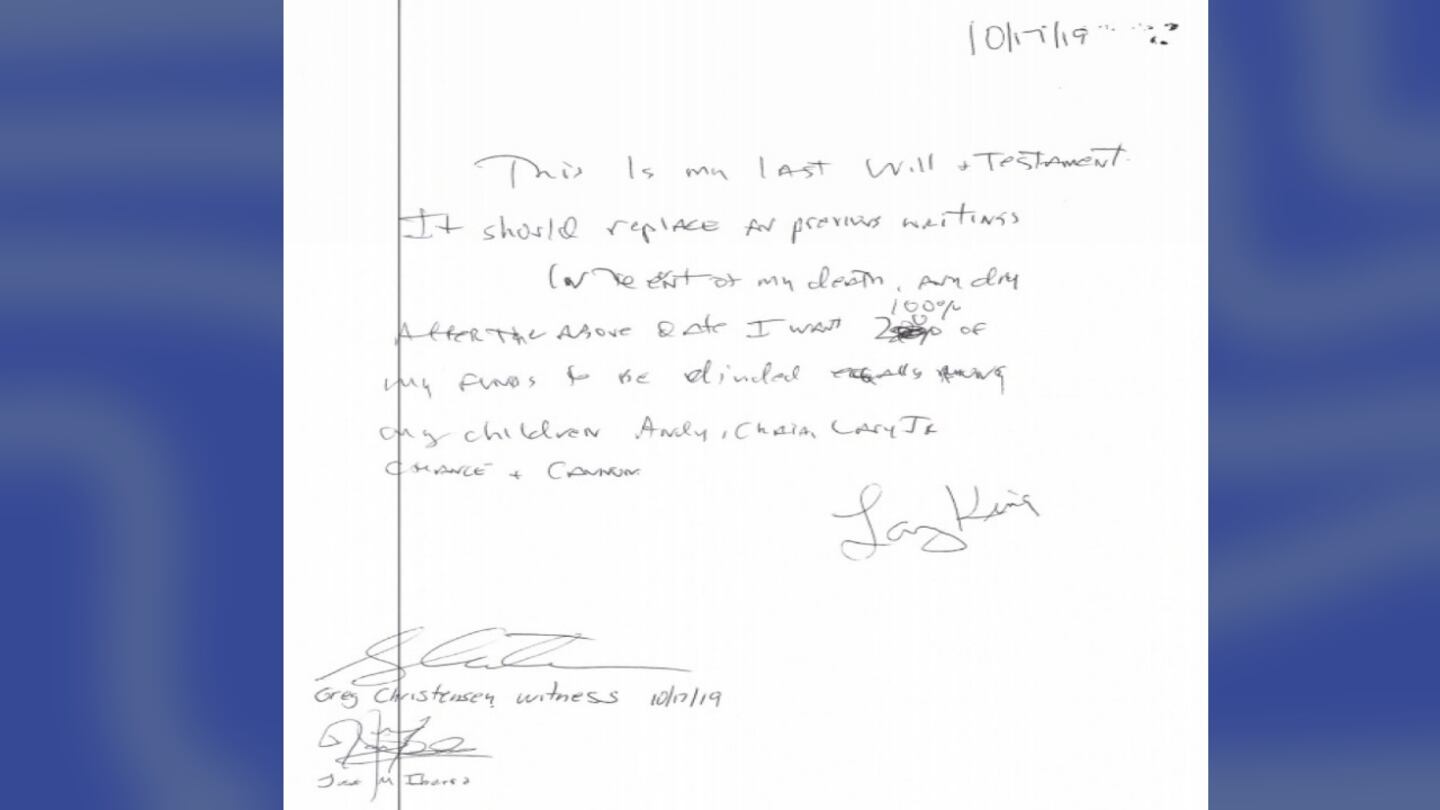 10/17/19
This Is my last Will + Testament.
It should replace all previous writings
In the event of my death, any day
100%
After the above date I want of
my funds to be divided equally among
my children Andy, Chaia, Larry Jr
Chance + Cannon
Larry King
Greg Christensen, witness 10/17/19
M